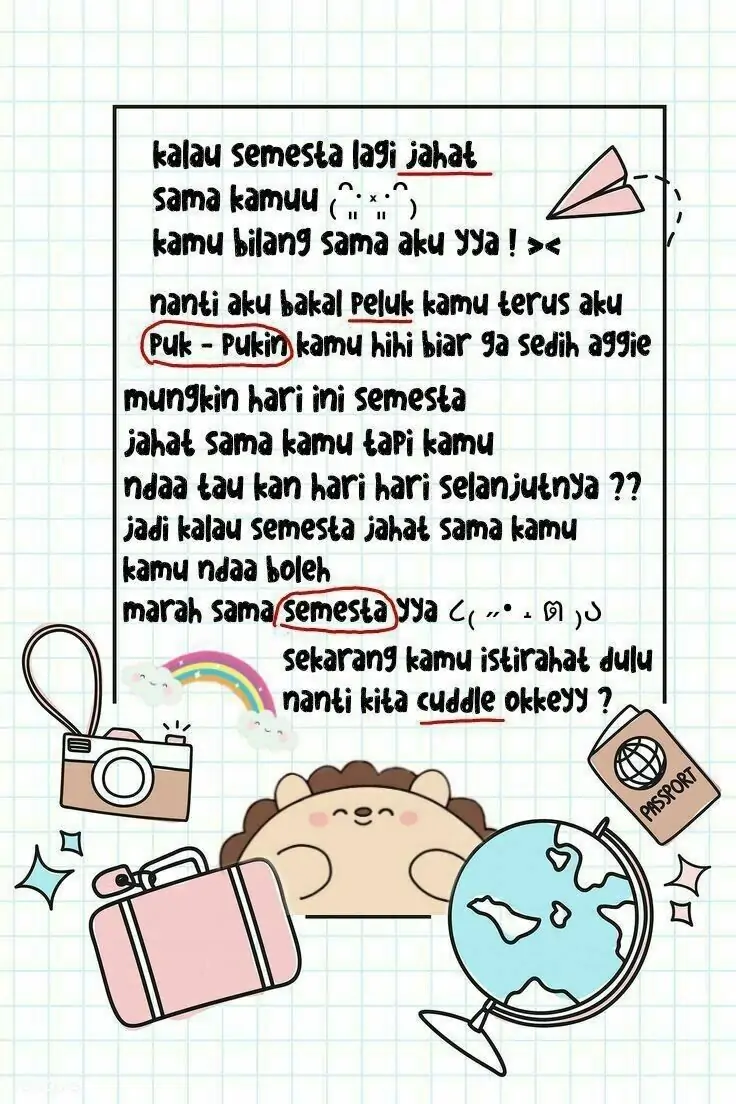 kalau semesta lagi jahat
sama kamuu ( ᵔ ॣ • ₓ • ᵔ ॣ )
kamu bilang sama aku yya ! ><
nanti aku bakal peluk kamu terus aku
puk - pukin kamu hihi biar ga sedih aggie
mungkin hari ini semesta
jahat sama kamu tapi kamu
ndaa tau kan hari hari selanjutnya ??
jadi kalau semesta jahat sama kamu
kamu ndaa boleh
marah sama semesta yya
sekarang kamu istirahat dulu
nanti kita cuddle okkeyy ?
PASSPORT